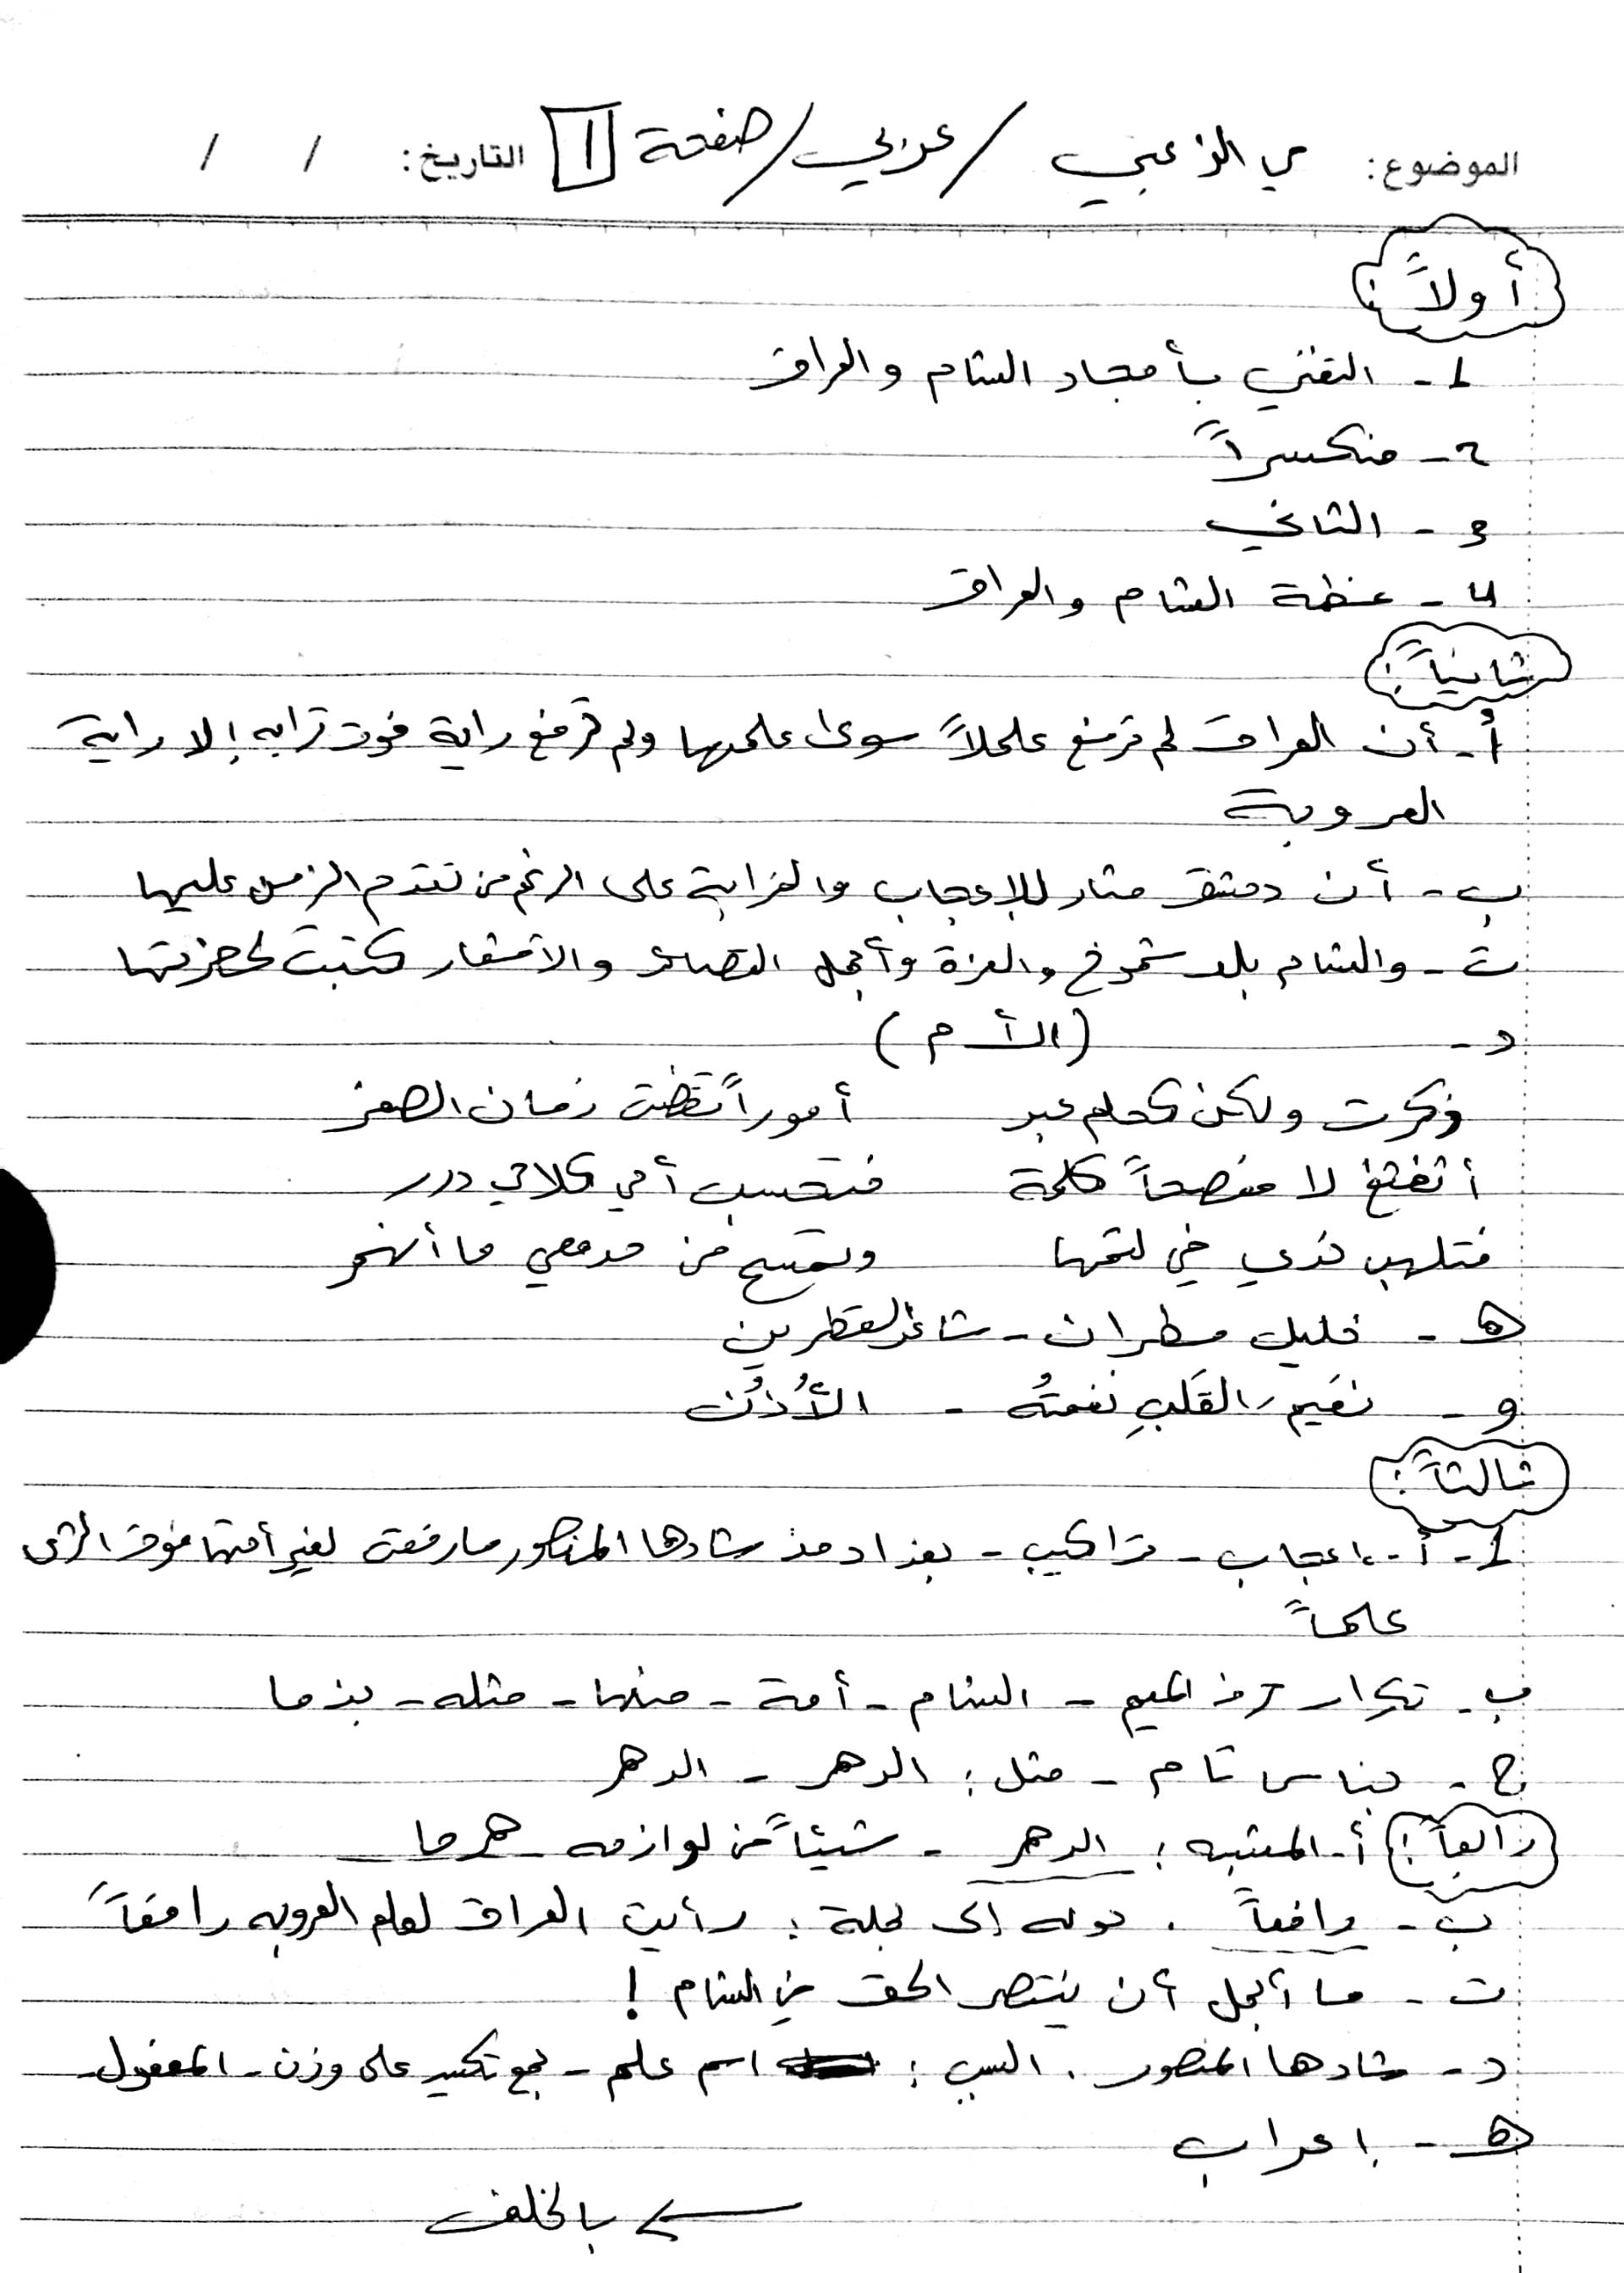 الموضوع: مي الزعبي / عربي / صفحة 1 التاريخ: / /
أولاً:
1- التغني بأمجاد الشام والعراق
2- منكسراً
3- الثاني
4- عظمة الشام والعراق
ثانياً:
أ- أن العراق لم ترفع علماً سوى علمها ولم ترفع راية فوق ترابه إلا راية
العروبة
ب- أن دمشق مثار للإعجاب والغرابة على الرغم من تقدم الزمن عليها
ت- والشام بلد شموخ والعزة وأجمل القصائد والأشعار كتبت لحضرتها
د- (الأم)
ذكرت ولكن كحلم عبر أموراً تقضت زمان الصغر
أثغثغ لا مفصحاً كلمة فتحسب أمي كلامي درر
فتلهب خدي في لثمها وتمسح من مدمعي ما انهمر
هـ - خليل مطران - شاعر القطرين
و - نَعَيم القَلبِ نغمتُه - الأُذُن
ثالثاً:
1- أ- إعجاب - تراكيب - بغداد مذ شادها المنصور ما رفعت لغير أمتها فوق الثرى
علماً
ب- تكرار حرف الميم - الشام - أمة - منهما - مثله - بذما
ج- جناس تام - مثل: الدهر - الدهر
رابعاً: أ- المشبه: الدهر - شيئاً من لوازمه هرما
ب- رافعاً. حوله إلى جملة: رأيت العراق لعلم العروبه رافعاً
ت- ما أجمل أن ينتصر الحق في الشام!
د- شادها المنصور. السبب: اسم علم - جمع تكسير على وزن - المفعول -
هـ - إعراب
بالخلف